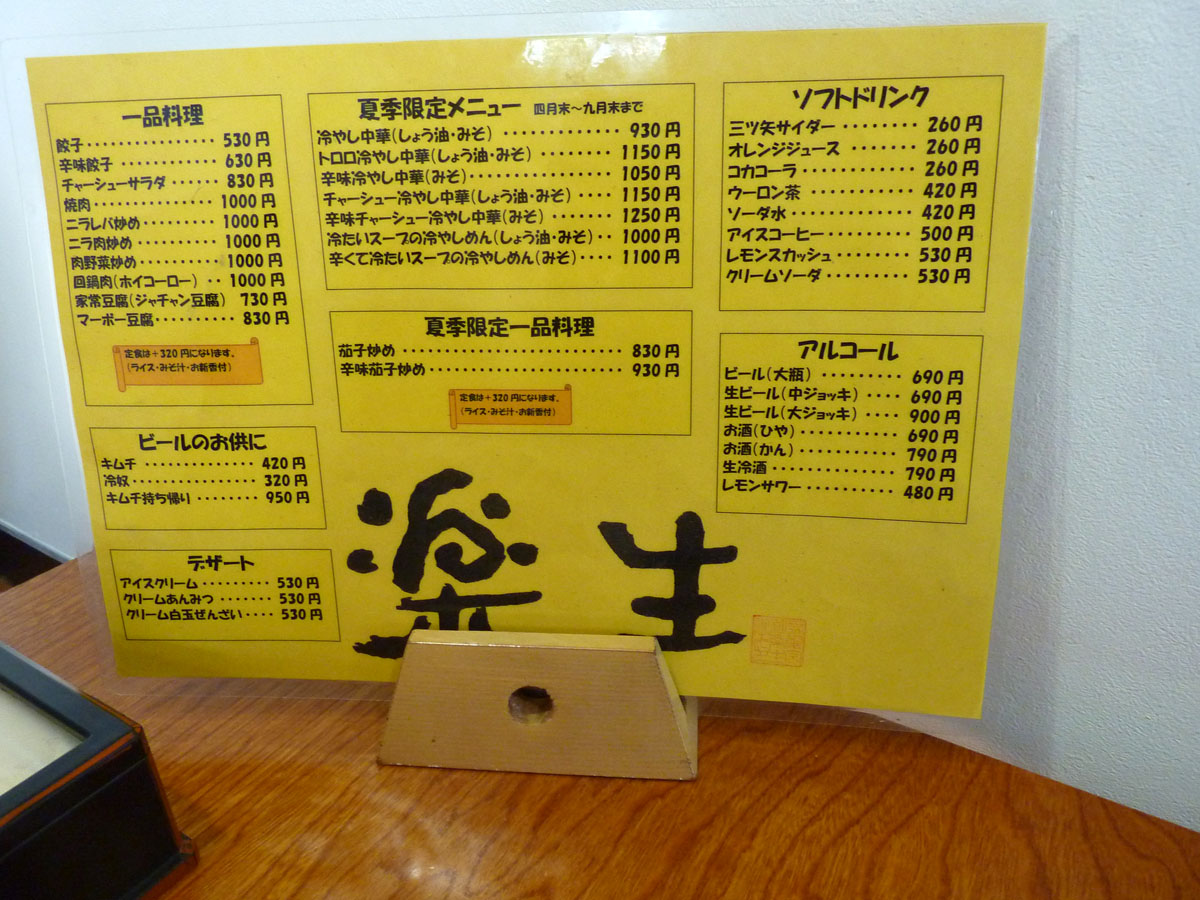 一品料理
餃子・・・・・・・・・・・・・・・530円
辛味餃子・・・・・・・・・・・・630円
チャーシューサラダ・・・・・・830円
焼肉・・・・・・・・・・・・・・・1000円
ニラレバ炒め・・・・・・・・・1000円
ニラ肉炒め・・・・・・・・・・1000円
肉野菜炒め・・・・・・・・・・1000円
回鍋肉(ホイコーロー)・・1000円
家常豆腐(ジャチャン豆腐) 730円
マーボー豆腐・・・・・・・・・・830円
定食は+320円になります。
(ライス・みそ汁・お新香付)
ビールのお供に
キムチ・・・・・・・・・・・・・420円
冷奴・・・・・・・・・・・・・・・320円
キムチ持ち帰り・・・・・・・・950円
デザート
アイスクリーム・・・・・・・・・530円
クリームあんみつ・・・・・・・530円
クリーム白玉ぜんざい・・・・530円
夏季限定メニュー 四月末~九月末まで
冷やし中華(しょう油・みそ)・・・・・・・・・・・・・930円
トロロ冷やし中華(しょう油・みそ)・・・・・・・・1150円
辛味冷やし中華(みそ)・・・・・・・・・・・・・1050円
チャーシュー冷やし中華(しょう油・みそ)・・・・・1150円
辛味チャーシュー冷やし中華(みそ)・・・・・・・1250円
冷たいスープの冷やしめん(しょう油・みそ)・・1000円
辛くて冷たいスープの冷やしめん(みそ)・・・・1100円
夏季限定一品料理
茄子炒め・・・・・・・・・・・・・・・・・・・・・・・830円
辛味茄子炒め・・・・・・・・・・・・・・・・・・・・930円
定食は+320円になります。
(ライス・みそ汁・お新香付)
ソフトドリンク
三ツ矢サイダー・・・・・・・・260円
オレンジジュース・・・・・・・260円
コカコーラ・・・・・・・・・・・260円
ウーロン茶・・・・・・・・・・・420円
ソーダ水・・・・・・・・・・・・・420円
アイスコーヒー・・・・・・・・・500円
レモンスカッシュ・・・・・・・・530円
クリームソーダ・・・・・・・・・530円
アルコール
ビール(大瓶)・・・・・・・・・・690円
生ビール(中ジョッキ)・・・・690円
生ビール(大ジョッキ)・・・・900円
お酒(ひや)・・・・・・・・・・690円
お酒(かん)・・・・・・・・・・790円
生冷酒・・・・・・・・・・・・・790円
レモンサワー・・・・・・・・・・480円
楽生